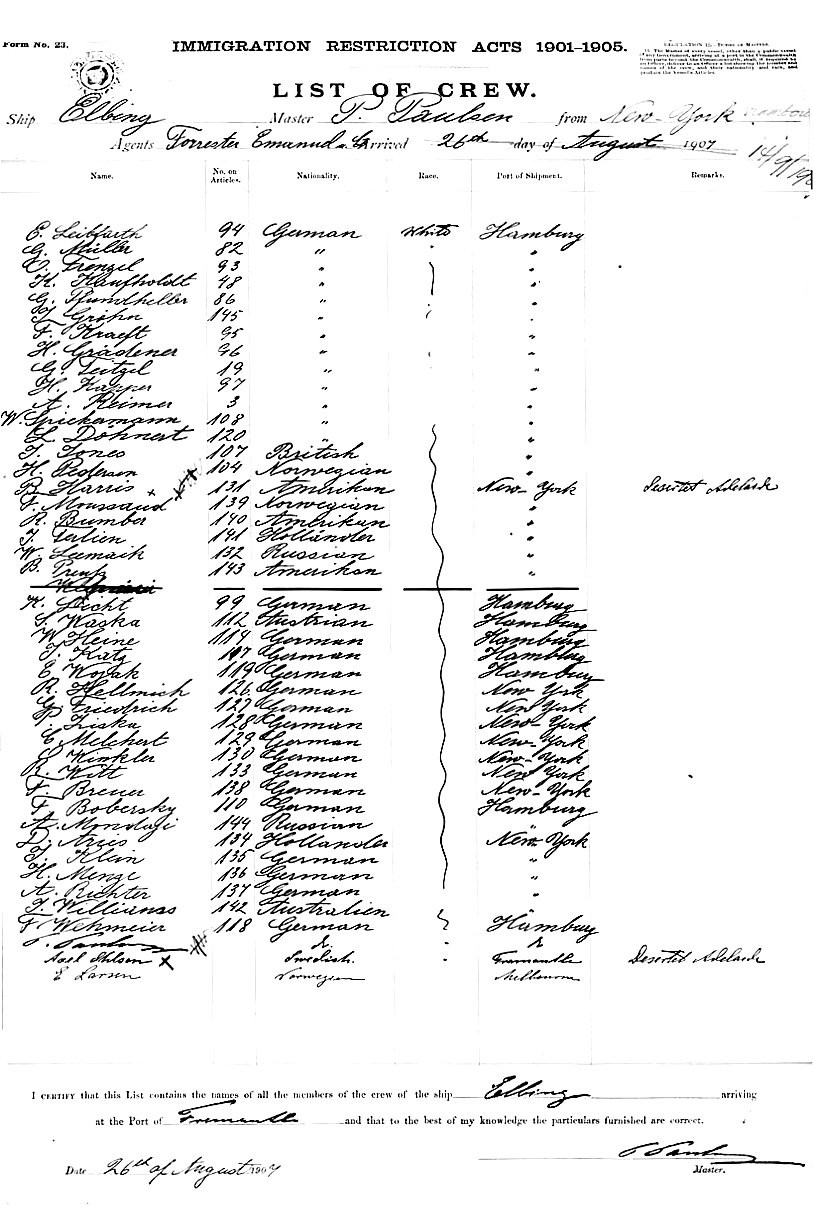 Form No. 23.
IMMIGRATION RESTRICTION ACTS 1901–1905.
REGULATION 15.—DUTIES OF MASTER.
LIST OF CREW.
Ship Elbing Master P. Paulsen from New-York
Agents Forrester Emanuel & Co Arrived 26th day of August 1907 14/9/19
Name. No. on Articles. Nationality. Race. Port of Shipment. Remarks.
E. Leibfarth 94 German White Hamburg
G. Müller 82 " " "
O. Frenzel 93 " "
K. Kaufholdt 48 " "
G. Pfundheller 86 " "
T. Gröhn 145 " "
F. Kraeft 95 " "
H. Grädener 96 " "
G. Teitzel 19 " "
H. Kasper 97 " "
A. Reimer 3 " "
W. Spickermann 108 " "
L. Döhnert 120 " "
T. Jones 107 British "
H. Pedersen 104 Norwegian "
B. Harris x 131 Amerikan New-York Deserted Adelaide
F. Moussaud 139 Norwegian "
R. Bumba 140 Amerikan "
J. 141 Holländer "
W. Leemaik 132 Russian "
B. Preuß 143 Amerikan "
K. Licht 99 German Hamburg
S. Waska 112 Austrian Hamburg
W. Heine 114 German Hamburg
J. Katz 117 German Hamburg
E. Wojak 119 German Hamburg
R. Hellmich 126 German New York
G. Friedrich 127 German New York
P. Ziska 128 German New-York
C. Melchert 129 German New-York
Winkler 130 German New-York
R. Witt 133 German New York
F. Breuer 138 German New-York
F. Bobersky 110 German Hamburg
A. Mondaji 144 Russian "
D. Aries 134 Hollander New-York
J. Klein 135 German "
H. Menge 136 German "
A. Richter 137 German "
T. Willianss 142 Australien "
F. Wehmeier 118 German Hamburg
Axel Ohlson x Swedish. Fremantle Deserted Adelaide
E Larsen Norwegian Melbourne
I CERTIFY that this List contains the names of all the members of the crew of the ship Elbing arriving
at the Port of Fremantle and that to the best of my knowledge the particulars furnished are correct.
Date 26th of August 1907 Master.